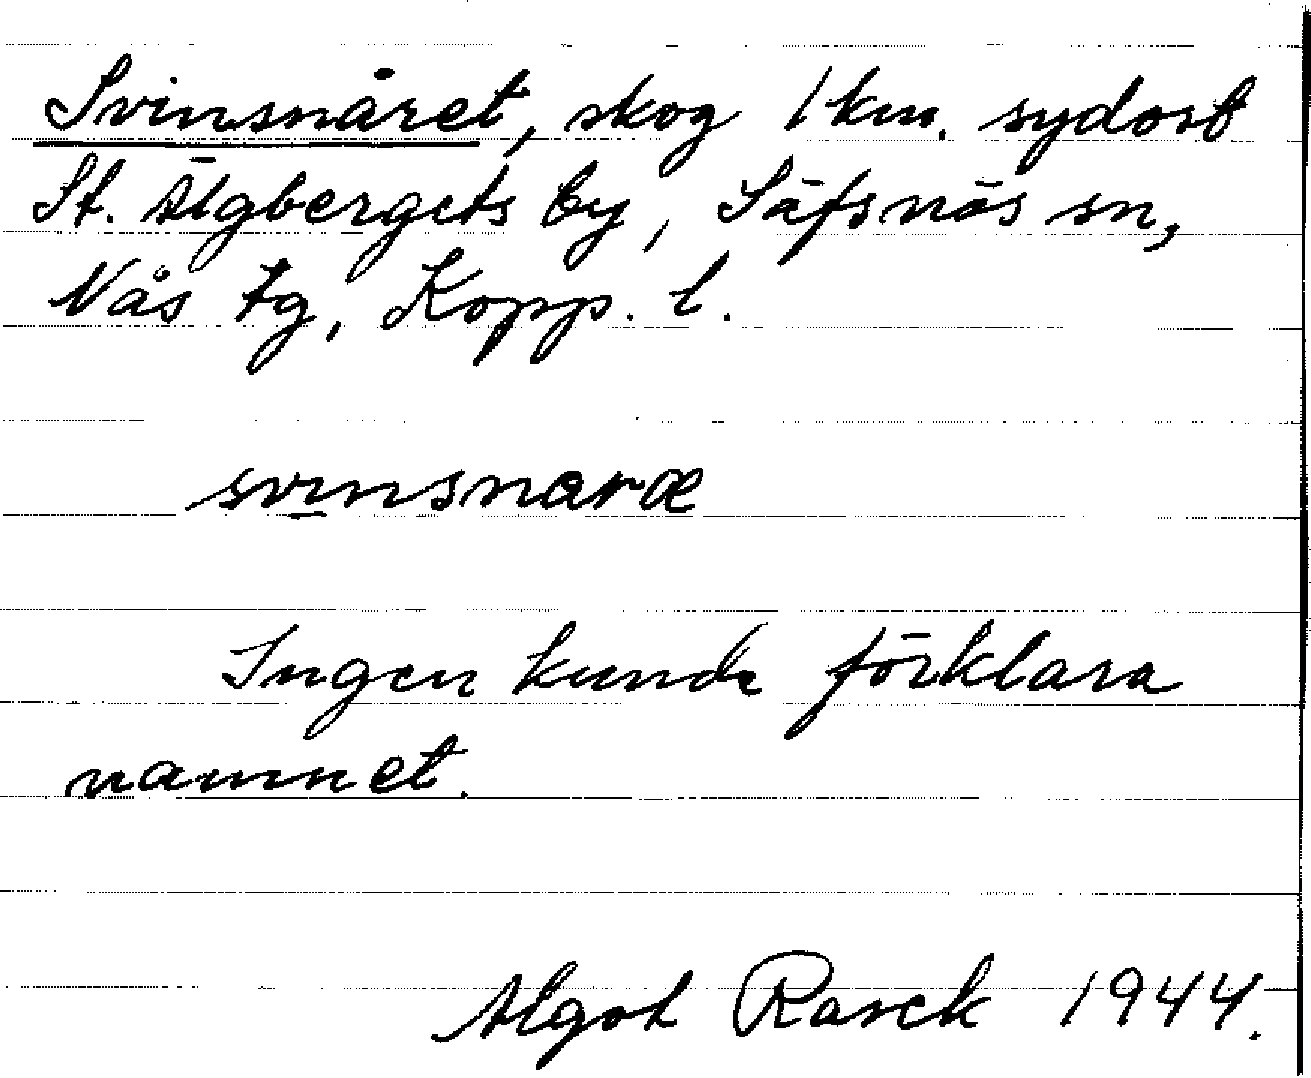 Svinsnåret, skog 1 km. sydost
St. Älgbergets by, Säfsnäs sn,
Nås tg, Kopp. l.
svinsnaræ
Ingen kunde förklara
namnet.
Algot Rasck 1944.